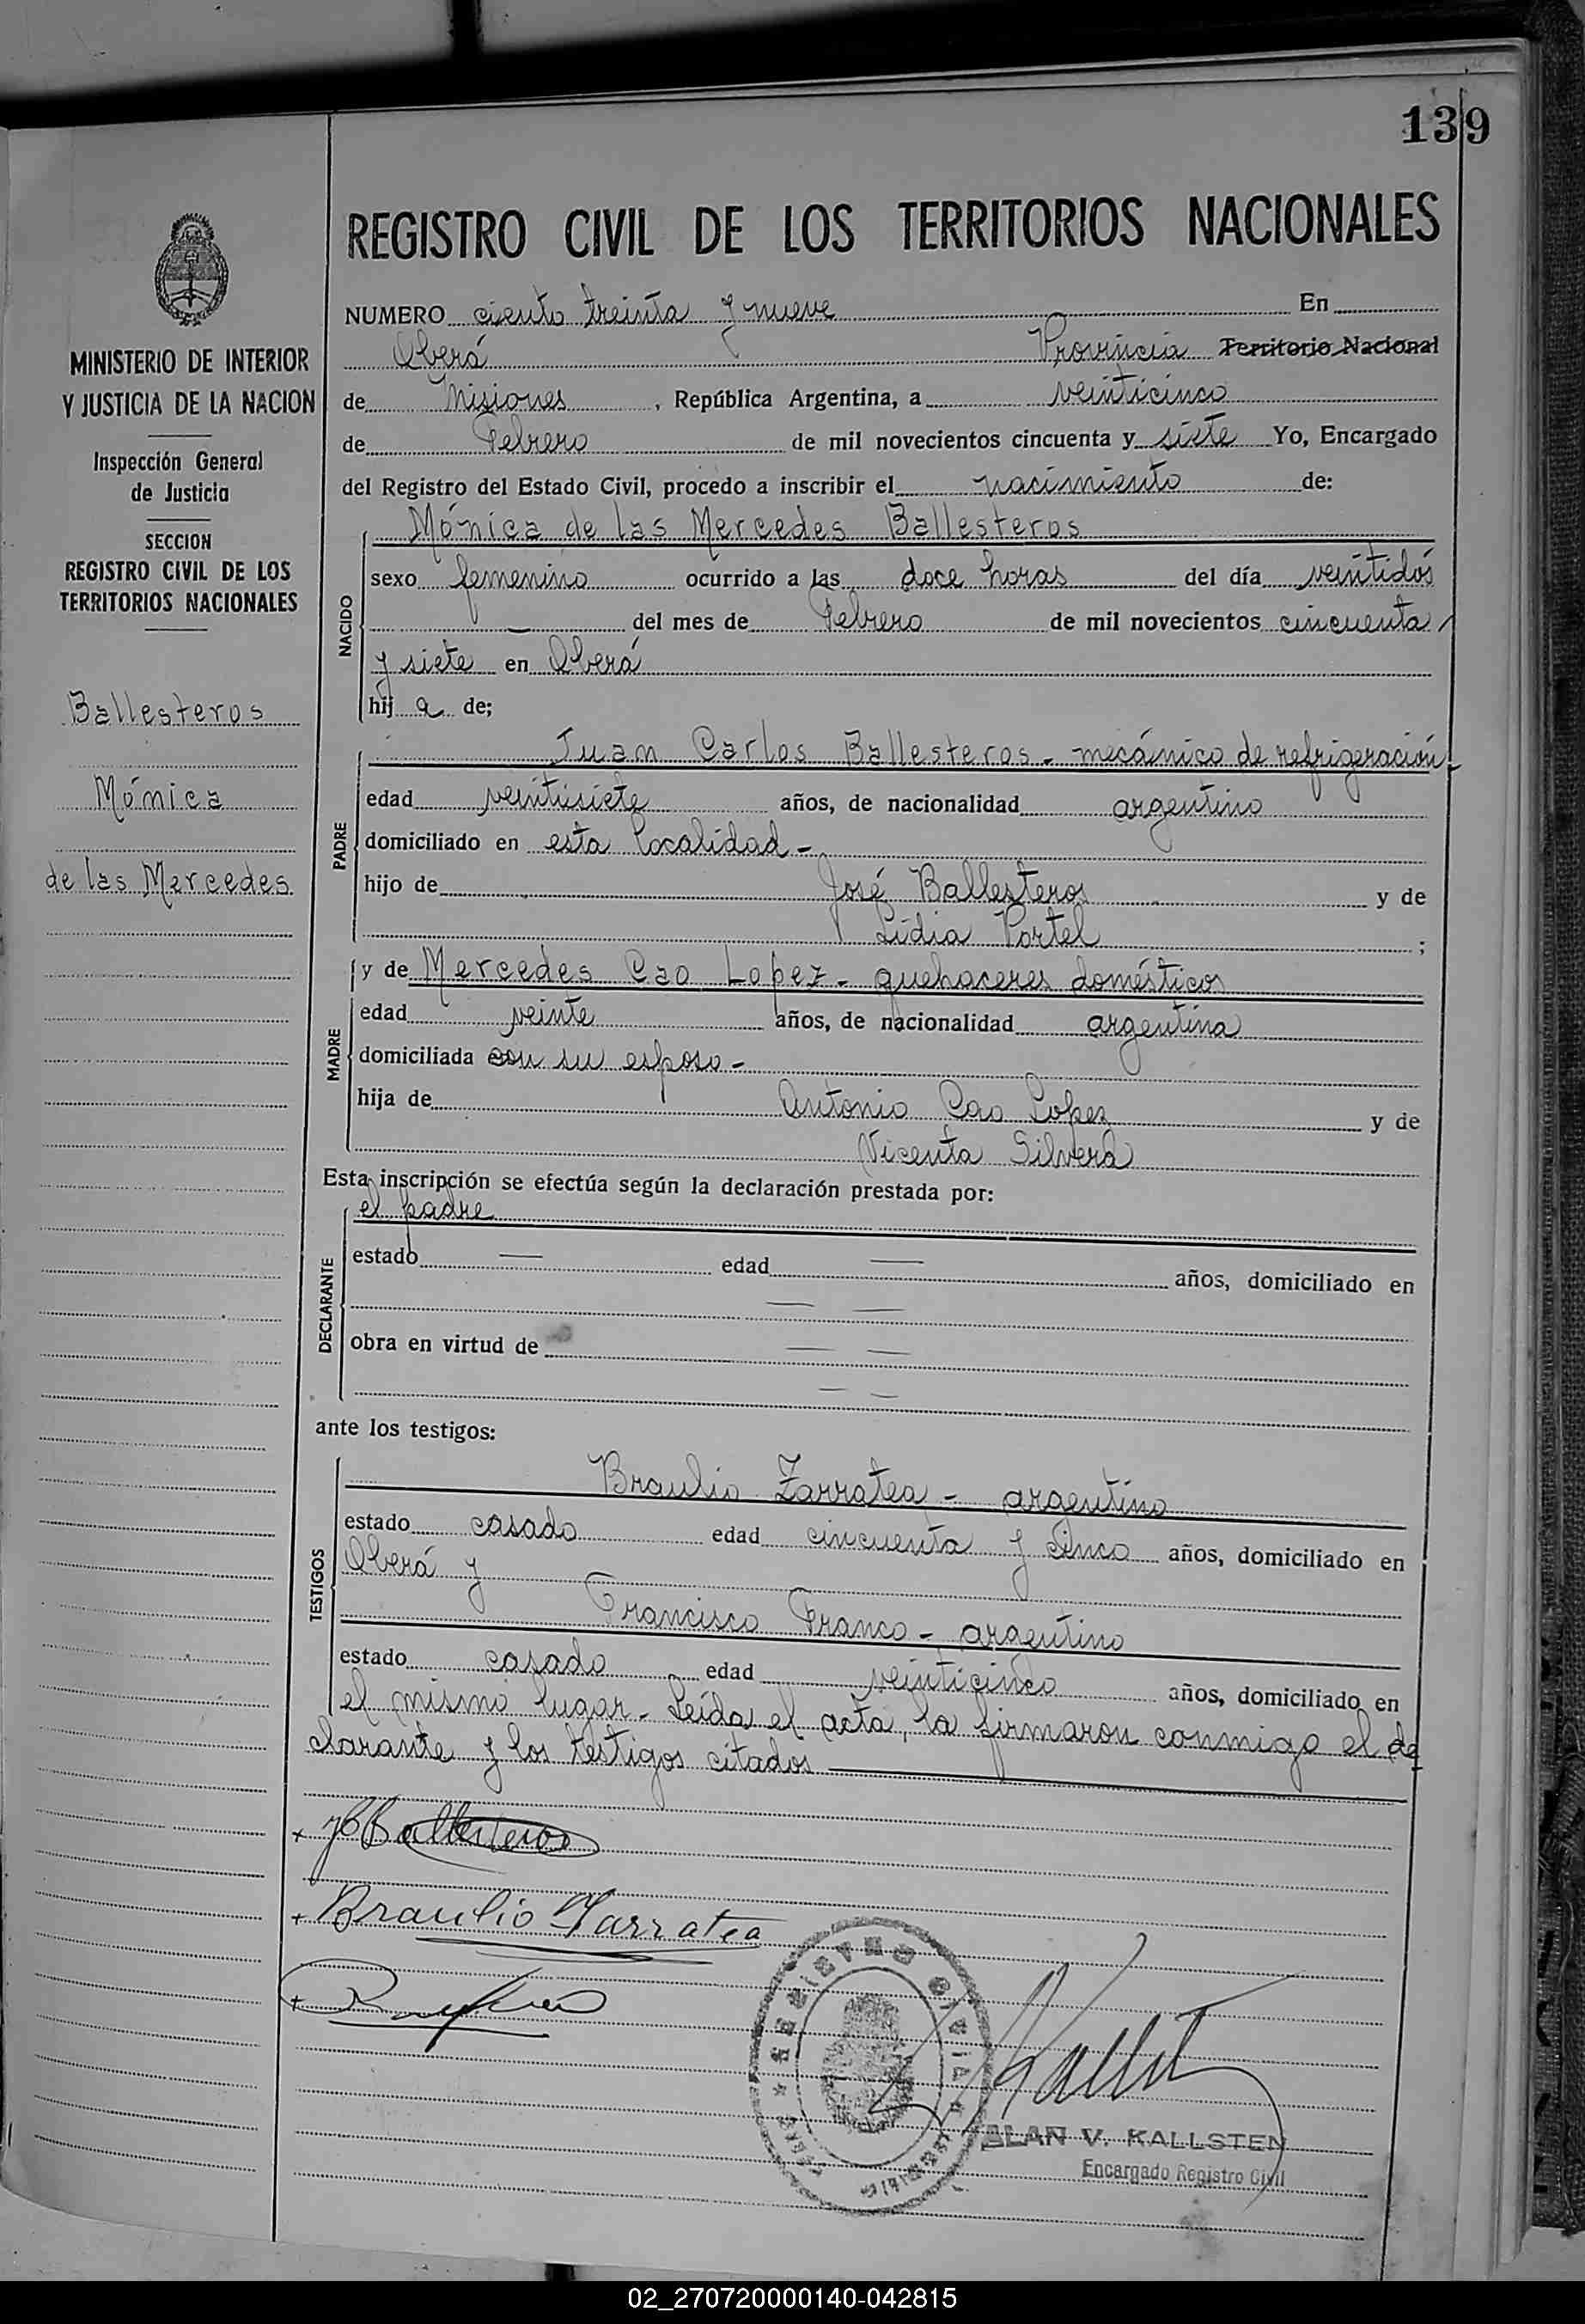 139
MINISTERIO DE INTERIOR
Y JUSTICIA DE LA NACION
Inspección General
de Justicia
SECCION
REGISTRO CIVIL DE LOS
TERRITORIOS NACIONALES
Ballesteros
Mónica
de las Mercedes
REGISTRO CIVIL DE LOS TERRITORIOS NACIONALES
NUMERO ciento treinta y nueve En
Oberá Provincia Territorio Nacional
de Misiones, República Argentina, a veinticinco
de Febrero de mil novecientos cincuenta y siete Yo, Encargado
del Registro del Estado Civil, procedo a inscribir el nacimiento de:
NACIDO
Mónica de las Mercedes Ballesteros
sexo femenino ocurrido a las doce horas del día veintidós
del mes de Febrero de mil novecientos cincuenta
y siete en Oberá
hij a de;
PADRE
Juan Carlos Ballesteros - mecánico de refrigeración -
edad veintisiete años, de nacionalidad argentino
domiciliado en esta localidad -
hijo de José Ballesteros y de
Lidia Portel ;
MADRE
y de Mercedes Cao Lopez - quehaceres domésticos
edad veinte años, de nacionalidad argentina
domiciliada con su esposo -
hija de Antonio Cao Lopez y de
Vicenta Silvera
Esta inscripción se efectúa según la declaración prestada por:
DECLARANTE
el padre
estado — edad — años, domiciliado en
— —
obra en virtud de — —
— —
ante los testigos:
TESTIGOS
Braulio Zarratea - argentino
estado casado edad cincuenta y cinco años, domiciliado en
Oberá y
Francisco Franco - argentino
estado casado edad veinticinco años, domiciliado en
el mismo lugar - Leída el acta, la firmaron conmigo el de
clarante y los testigos citados
+ JCBallesteros
+ Braulio Zarratea
+
REGISTRO CIVIL
Kallst
ALAN V. KALLSTEN
Encargado Registro Civil
02_270720000140-042815